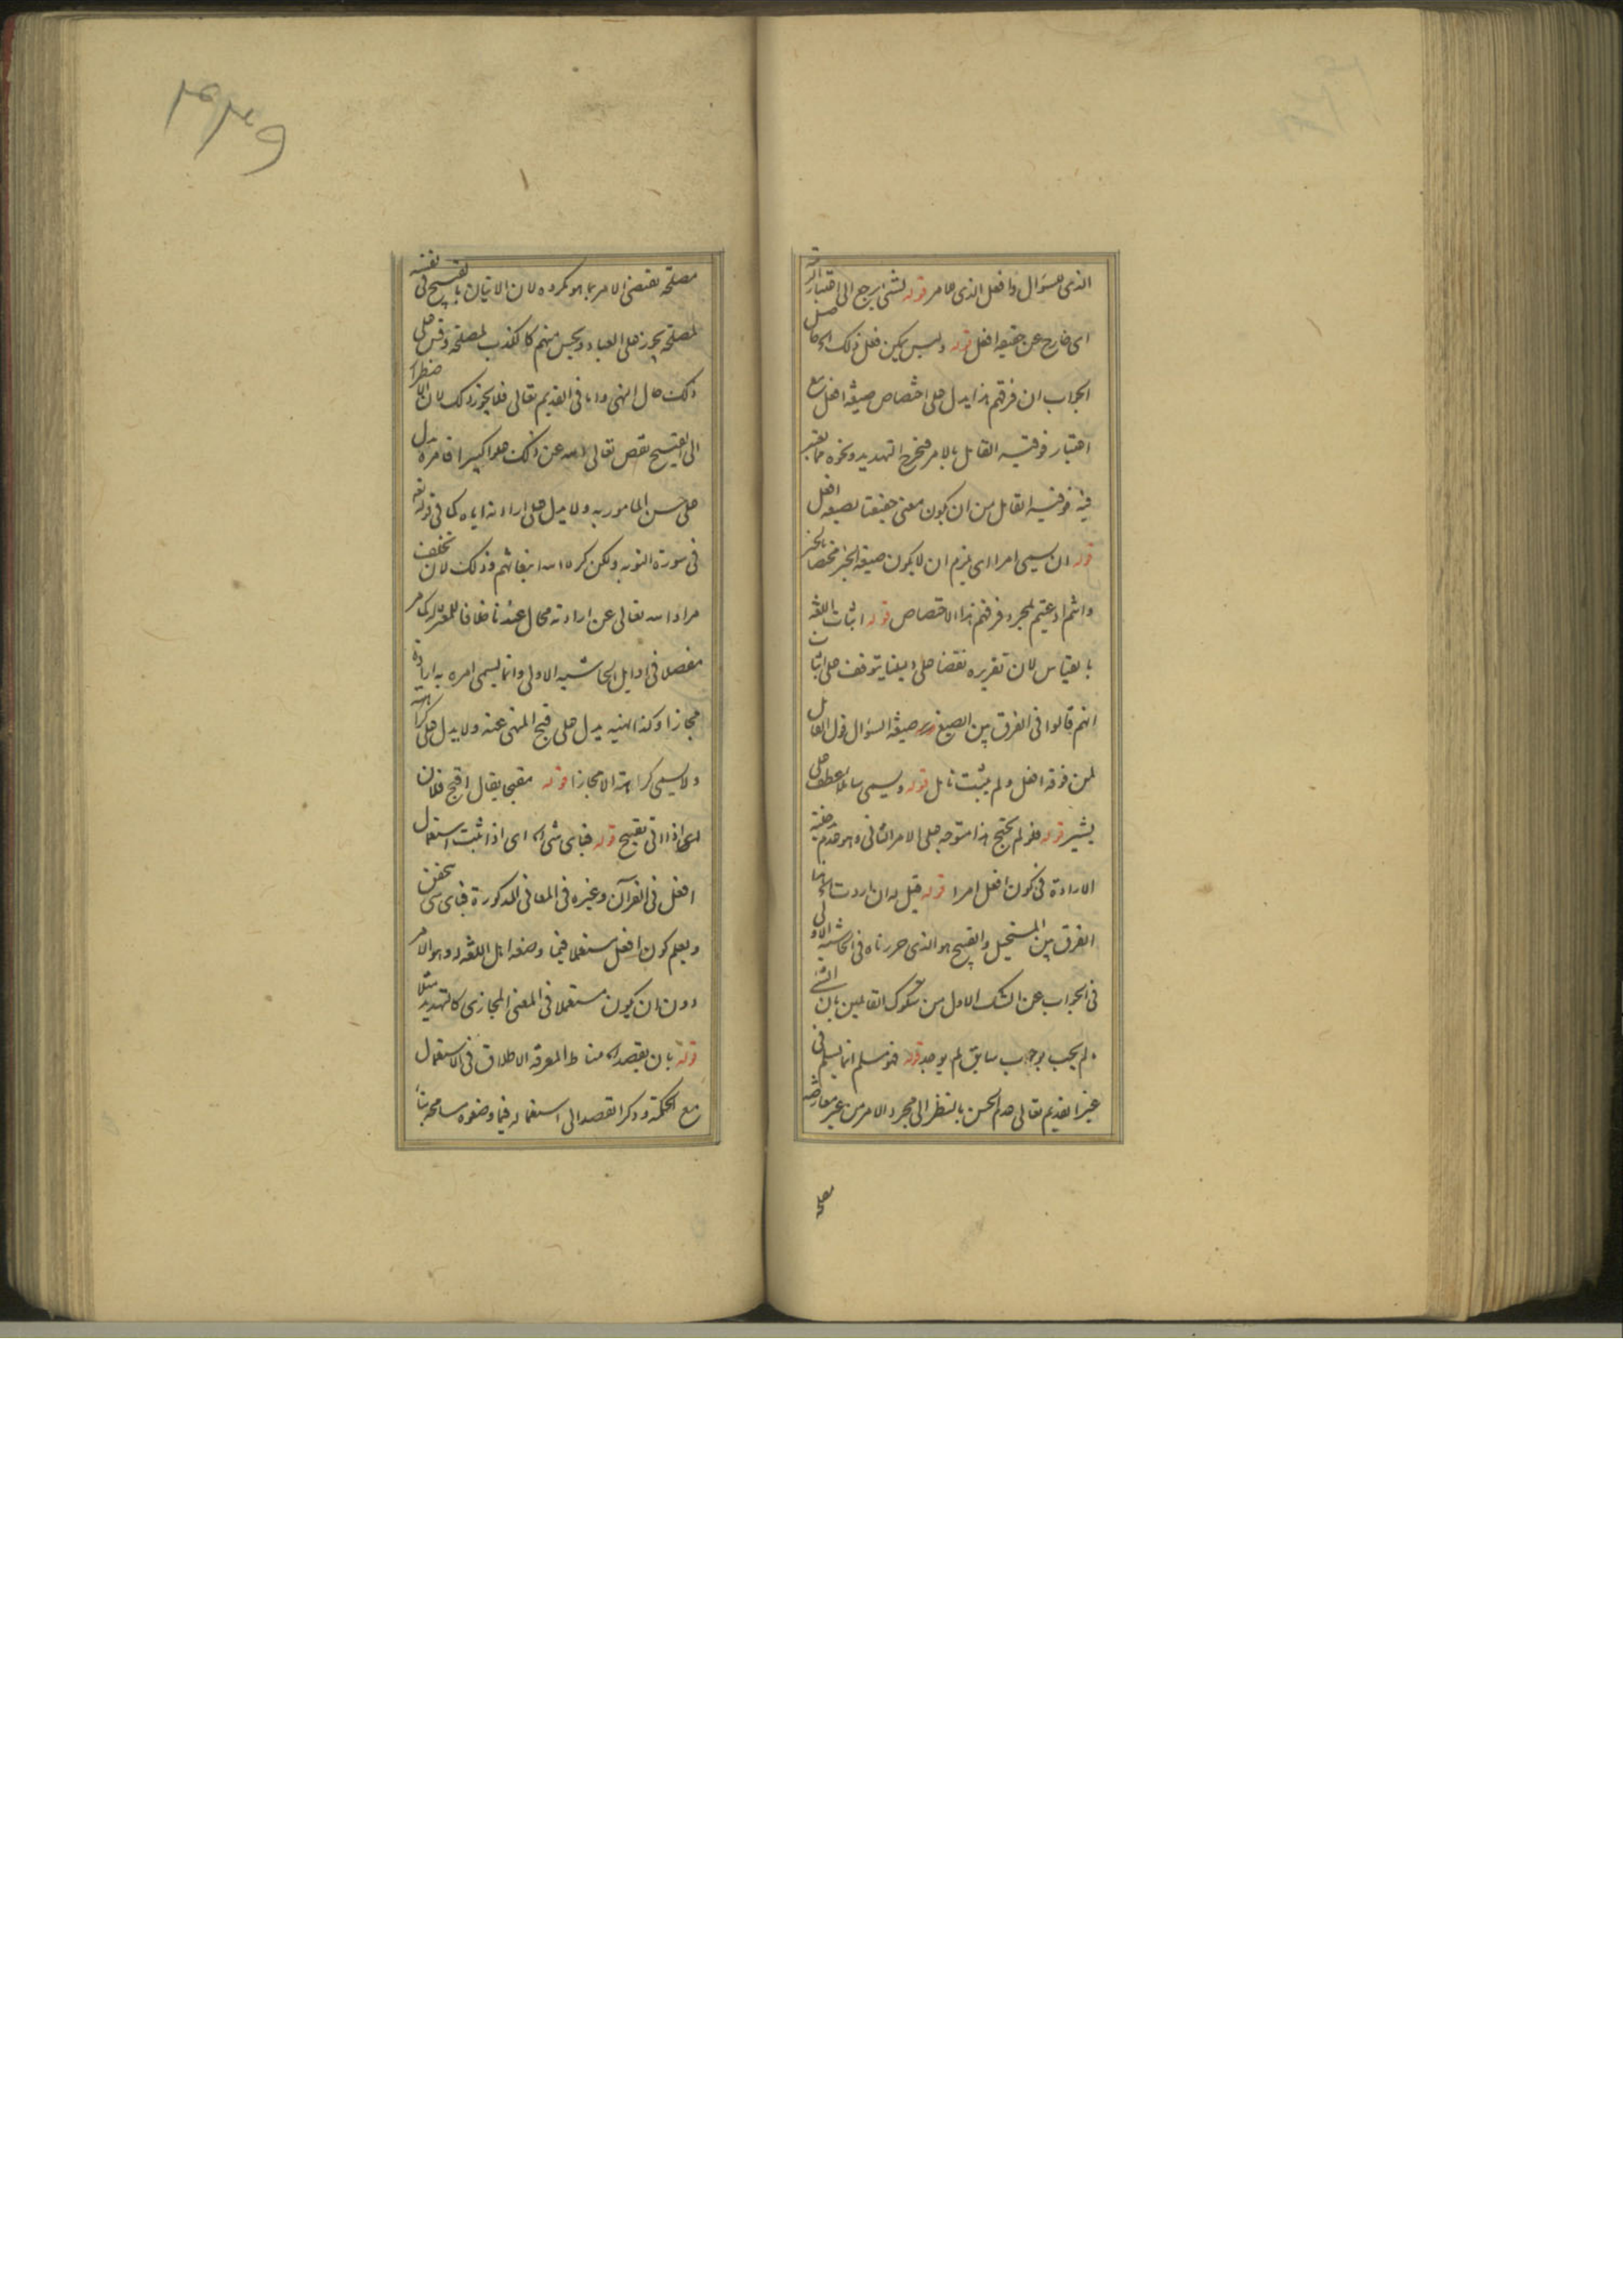 الذى للسؤال وافعل الذى للامر قوله لشى يرجع الى اعتبار الرتبة
اى خارج عن حقيقة افعل قوله وليس يمكن فعل ذلك الخ حاصل
الجواب ان فرقهم هذا يدل على اختصاص صيغة افعل مع
اعتبار فوقية القائل بالامر فيخرج التهديد ونحوه مما يعتبر
فيه فوقية القائل من ان يكون معنى حقيقيا لصيغة افعل
قوله ان يسمى امرا اى يلزم ان لا يكون صيغة الخبر مختصا بالخبر
وانتم ادعيتم لمجرد فرقهم هذا الاختصاص قوله اثبات اللغة
بالقياس لان تقريره نقضا على دليلنا يتوقف على اثبات
انهم قالوا فى الفرق بين الصيغ صيغة السؤال قول القائل
لمن فوقه افعل ولم يثبت تأمل قوله ويسمى سائلا عطف على
يشير قوله فلو لم يحتج هذا متوجه على الامر الثانى وهو عدم مدخلية
الارادة فى كون افعل امرا قوله قيل له ان اردت الخ هذا
الفرق بين المستحيل والقبيح هو الذى حررناه فى الحاشية الاولى
فى الجواب عن الشك الاول من شكوك القائلين بان الشئ
لم يجب بوجوب سابق لم يوجد قوله فهو مسلم انما يسلم فى
غير القديم تعالى عدم الحسن بالنظر الى مجرد الامر من غير معارضة
مصلحة
مصلحة تقتضى الامر بما هو مكروه لان الاتيان بالقبيح فى نفسه
لمصلحة يجوز على العباد ويحسن منهم كالكذب لمصلحة وقس على
ذلك حال النهى واما فى القديم تعالى فلا يجوز ذلك لان الاضطرار
الى القبيح نقص تعالى الله عن ذلك علوا كبيرا فامره يدل
على حسن المامور به ولا يدل على ارادته اياه كما فى قوله تع
فى سورة التوبة ولكن كره الله انبعاثهم وذلك لان تخلف
مراد الله تعالى عن ارادته محال عندنا خلافا للمعتزلة كما مر
مفصلا فى اوايل الحاشية الاولى وانما يسمى امره به ارادة
مجازا وكذا نهيه يدل على قبح المنهى عنه ولا يدل على كراهته
ولا يسمى كراهة الا مجازا قوله مقبحا يقال اقبح فلان
اى اذا اتى بقبيح قوله فباى شى الخ اى اذا ثبت استعمال
افعل فى القرآن وغيره فى المعانى المذكورة فباى شى تحقق
ويعلم كون افعل مستعملا فيما وضعه اهل اللغة له وهو الامر
دون ان يكون مستعملا فى المعنى المجازى كالتهديد مثلا
قوله بان يقصد الخ مناط المعرفة الاطلاق فى الاستعمال
مع الحكمة وذكر القصد الى استعماله فيما وضعوه مسامحة بناء